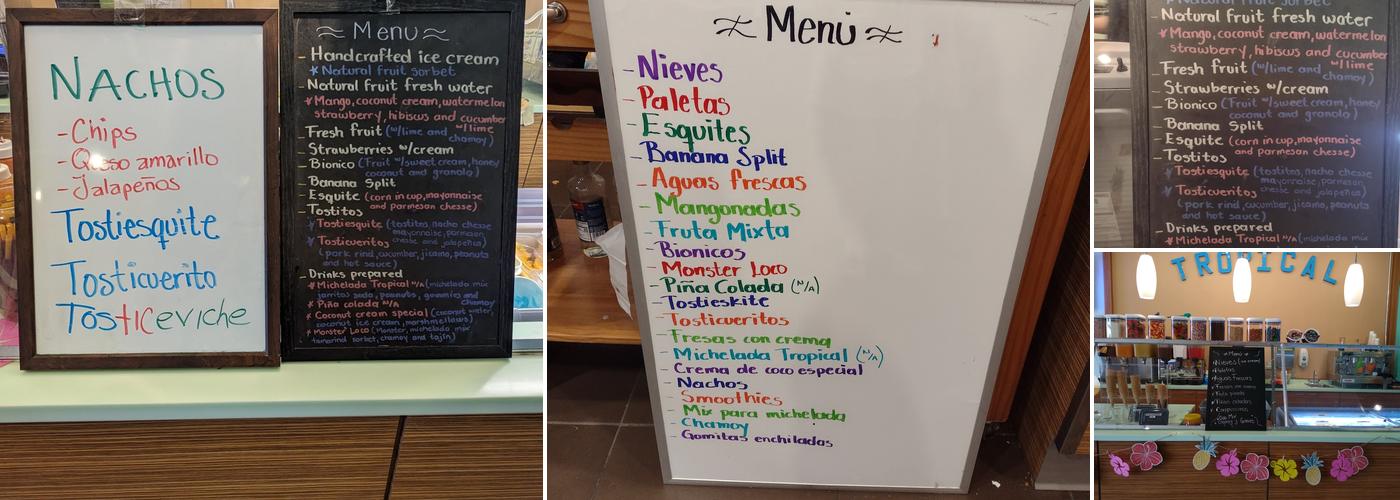 NACHOS
-Chips
-Queso amarillo
-Jalapeños
Tostiesquite
Tosticuerito
Tosticeviche
Menu
- Handcrafted ice cream
* Natural fruit sorbet
- Natural fruit fresh water
* Mango, coconut cream, watermelon
strawberry, hibiscus and cucumber
w/lime
- Fresh fruit (w/lime and
chamoy)
- Strawberries w/cream
- Bionico (Fruit w/sweet cream, honey
coconut and granola)
- Banana Split
- Esquite (corn in cup, mayonnaise
and parmesan chesse)
- Tostitos
* Tostiesquite (tostitos, nacho chesse
mayonnaise, parmesan
chesse and jalapeños)
* Tosticueritos
(pork rind, cucumber, jicama, peanuts
and hot sauce)
- Drinks prepared
* Michelada Tropical N/A (michelada mix
jarritos soda, peanuts, gummies and
chamoy
* Piña colada N/A
* Coconut cream special (coconut water,
coconut ice cream, marshmellows)
* Monster Loco (Monster, michelada mix
tamarind sorbet, chamoy and tajin)
Menú
- Nieves
- Paletas
- Esquites
- Banana Split
- Aguas frescas
- Mangonadas
- Fruta Mixta
- Bionicos
- Monster Loco
- Piña Colada (N/A)
- Tostieskite
- Tosticueritos
- Fresas con crema
- Michelada Tropical (N/A)
- Crema de coco especial
- Nachos
- Smoothies
- Mix para michelada
- Chamoy
- Gomitas enchiladas
* Natural fruit sorbet
- Natural fruit fresh water
* Mango, coconut cream, watermelon
strawberry, hibiscus and cucumber
w/lime
- Fresh fruit (w/lime and
chamoy)
- Strawberries w/cream
- Bionico (Fruit w/sweet cream, honey
coconut and granola)
- Banana Split
- Esquite (corn in cup, mayonnaise
and parmesan chesse)
- Tostitos
* Tostiesquite (tostitos, nacho chesse
mayonnaise, parmesan
chesse and jalapeños)
* Tosticueritos
(pork rind, cucumber, jicama, peanuts
and hot sauce)
- Drinks prepared
* Michelada Tropical N/A (michelada mix
TROPICAL
Menu
Nieves
Paletas
Aguas frescas